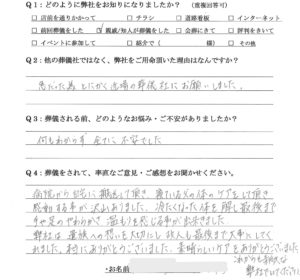 Q1：どのように弊社をお知りになりましたか？（重複回答可）
□ 店前を通りかかって　□ チラシ　□ 道路看板　□ インターネット
□ 前回葬儀をした　☑ 親戚/知人が葬儀をした　□ 会館にきて　□ 評判をきいて
□ イベントに参加して　□ 紹介で（　様）　□ その他
Q2：他の葬儀社ではなく、弊社をご用命頂いた理由はなんですか？
急だった為 とにかく 葬儀社にお願いしました。
Q3：葬儀される前、どのようなお悩み・ご不安がありましたか？
何もわからず 全てに 不安でした
Q4：葬儀をされて、率直なご意見・ご感想をお聞かせください。
病院から自宅に搬送して頂き、寝ている父の体のケアをして頂き
感動する事が沢山ありました。冷たくなった体を 最後まで
手や足のやわらかさ、温もりを感じる事が出来ました
弊社は 遺族への想いを大切にし 故人も最後まで大事にしてく
れました。本当にありがとうございました。素晴らしいケアをありがとうございました
これからも
・お名前